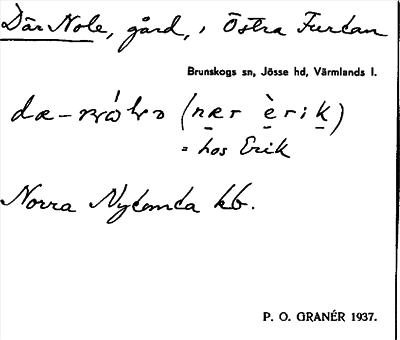 Där Nole, gård, i Östra Furtan
Brunskogs sn, Jösse hd, Värmlands l.
(nær èrik)
= hos Erik
Norra Nytomta kb.
P. O. GRANÉR 1937.